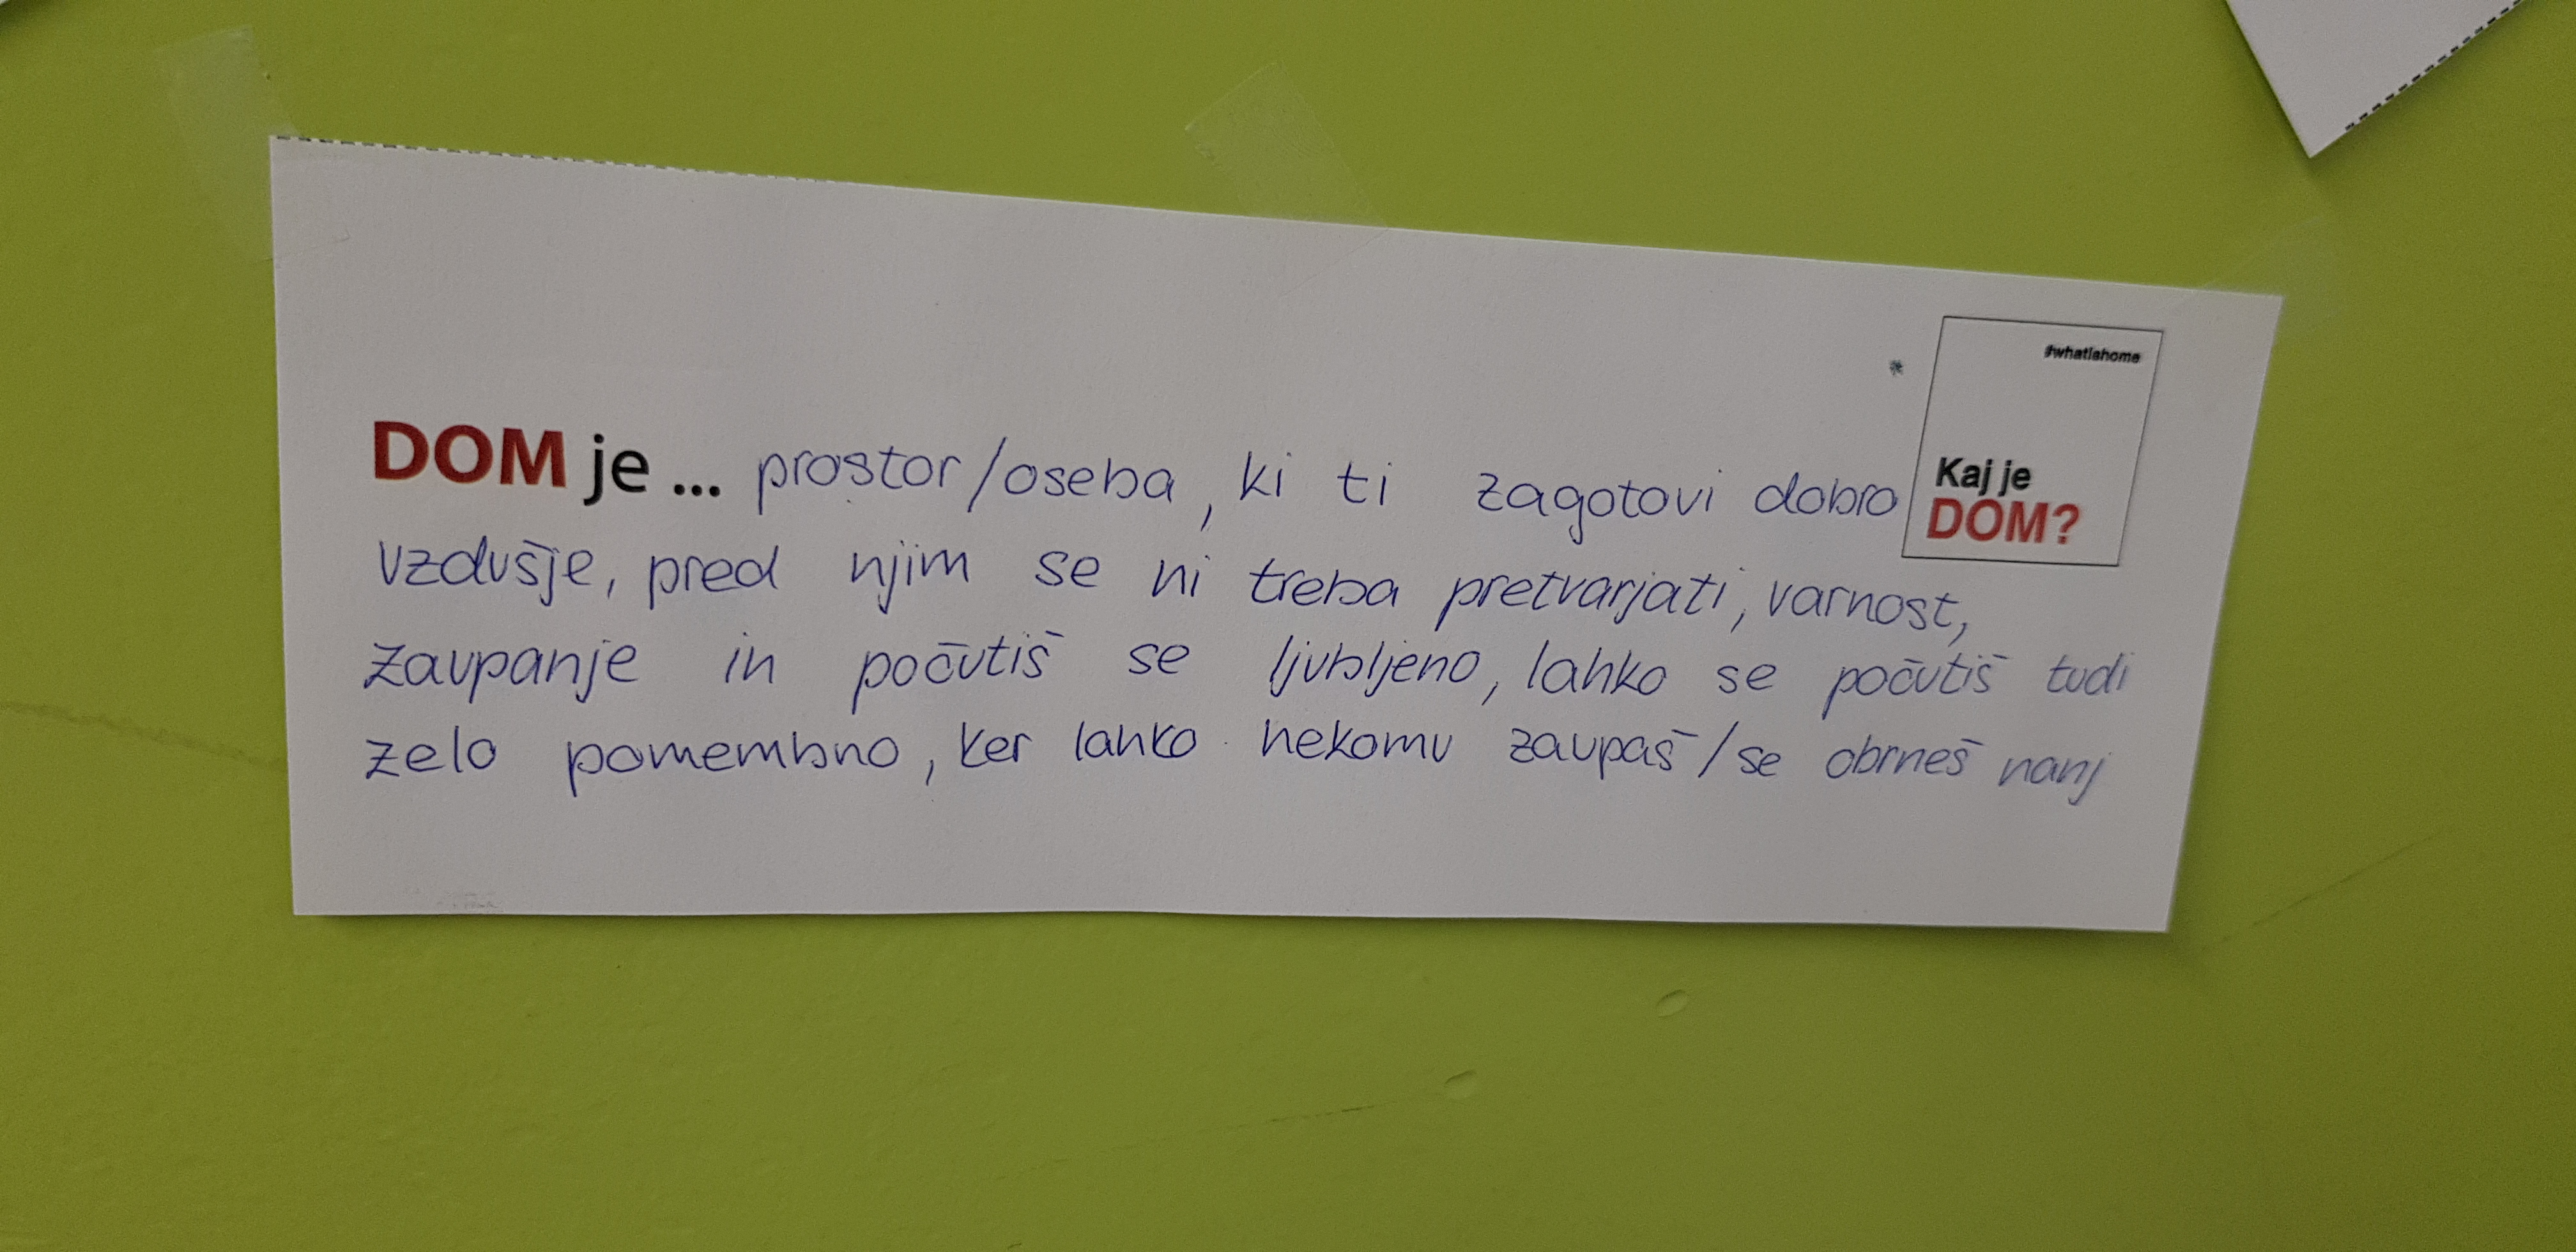 #whatishome
Kaj je
DOM?
DOM je ... prostor/oseba, ki ti zagotovi dobro
vzdušje, pred njim se ni treba pretvarjati, varnost,
zaupanje in počutiš se ljubljeno, lahko se počutiš tudi
zelo pomembno, ker lahko nekomu zaupaš/se obrneš nanj